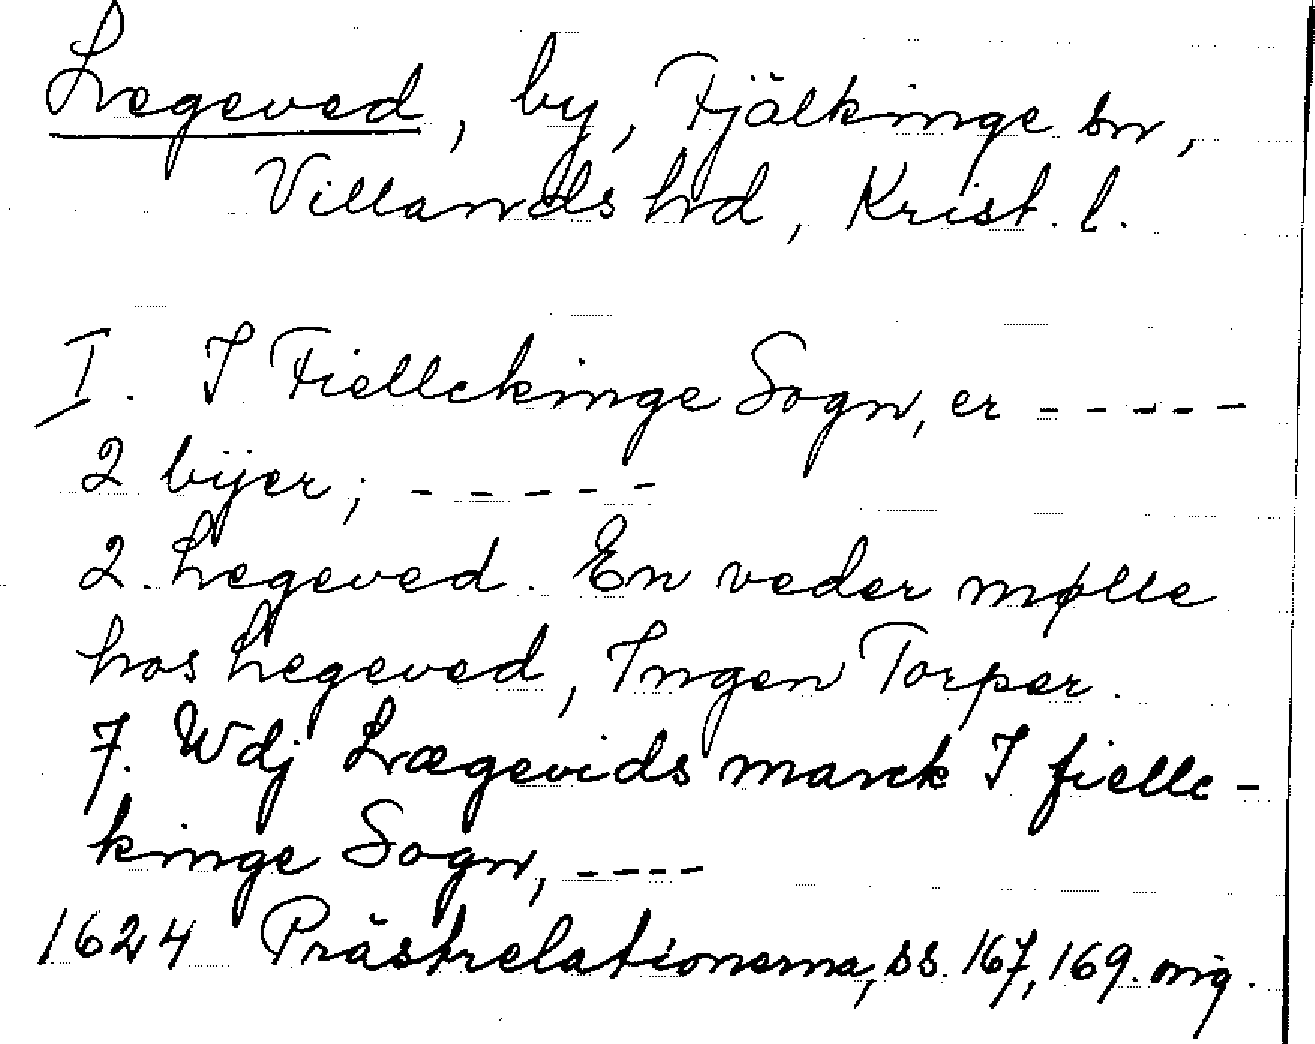 Legeved, by, Fjälkinge sn,
Villands hd, Krist. l.
I. I Fiellckinge Sogn, er - - - - -
2 bÿer; - - - - -
2. Legeved. En veder mølle
hos Legeved, Ingen Torper.
7. Wdj Lægevids marck I fiellc-
kinge Sogn, - - - -
1624 Prästrelationerna, ss. 167, 169. orig.